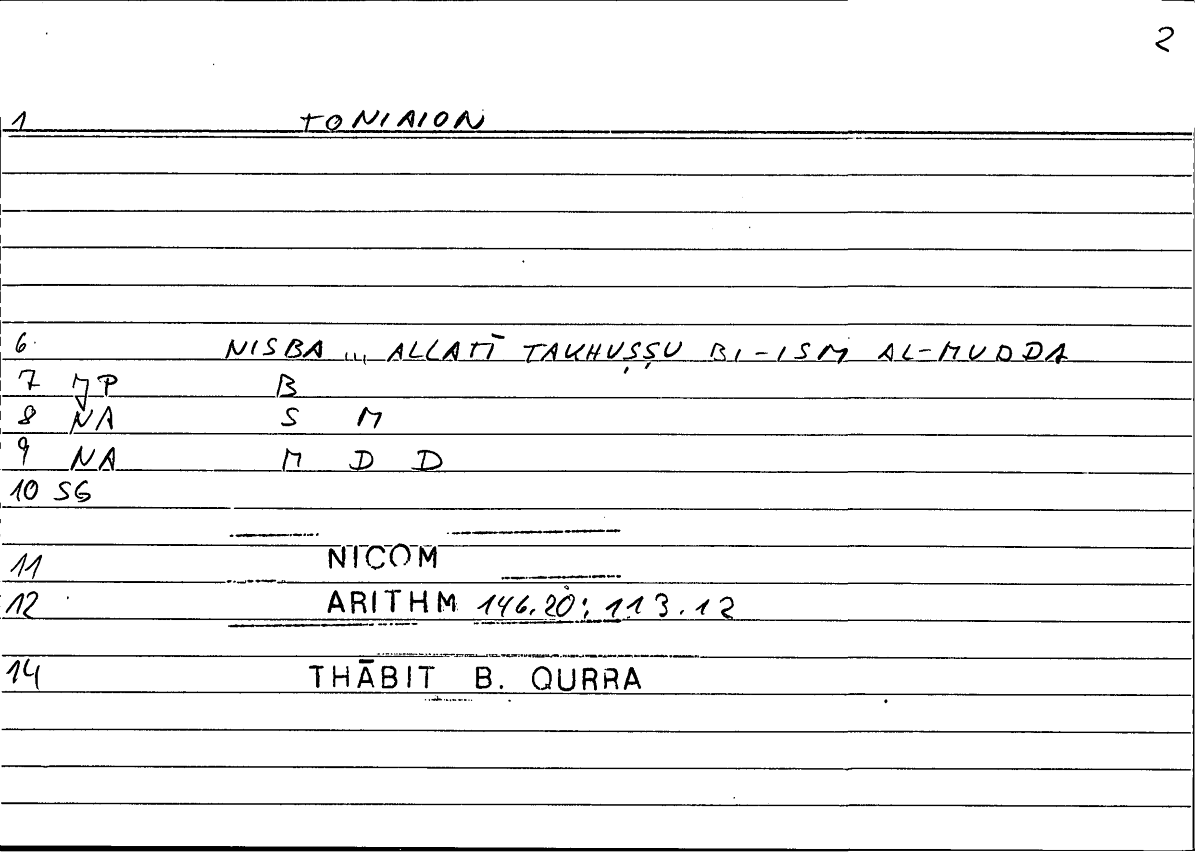 2
1 TONIAION
6 NISBA ... ALLATĪ TAKHUṢṢU BI-ISM AL-MUDDA
7 JP B
8 NA S M
9 NA M D D
10 SG
11 NICOM
12 ARITHM 146.20; 113.12
14 THĀBIT B. QURRA